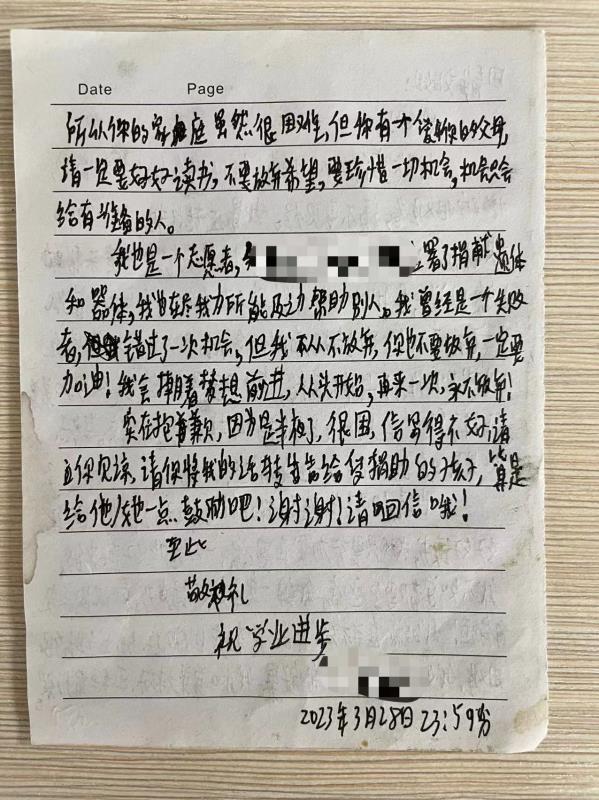 Date Page
所以你的家庭虽然很困难,但你有一个爱你的父母,
请一定要好好读书,不要放弃希望,要珍惜一切机会,机会只会
给有准备的人。
我也是一个志愿者, 署了捐献遗体
和器体,我也在尽我力所能及之力帮助别人。我曾经是一个失败
者,错过了一次机会,但我不从不放弃,你也不要放弃,一定要
加油!我会捧着梦想前进,从头开始,再来一次,永不放弃!
实在抱着歉,因为是半夜了,很困,信写得不好,请
见谅,请你将我的话转告给受捐助的孩子,算是
给他/她一点鼓励吧!谢谢!请回信哦!
至此
敬礼
祝学业进步
2023年3月28日 23:59分